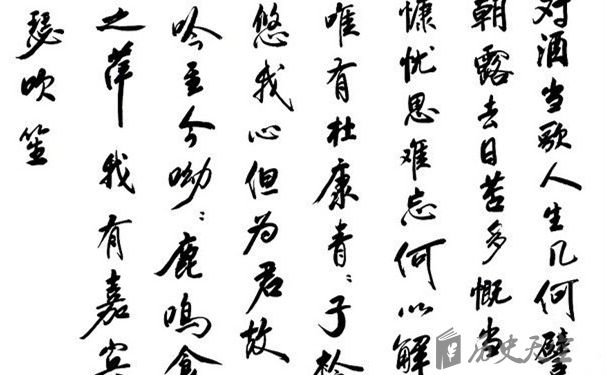 对酒当歌人生几何譬
朝露去日苦多慨当
慷忧思难忘何以解
唯有杜康青〻子衿
悠我心但为君故
吟至今呦〻鹿鸣食
之苹我有嘉宾
瑟吹笙
历史天空